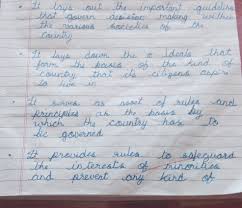 • It lays out the important guideline
that govern decision making within
the various societies of the
country
• It lays down the ideals that
form the basis of the kind of
country that its citizens aspire
to live in
• It serves as asset of rules and
principles as the basis by
which the country has to
be governed
• It provides rules to safeguard
the interests of minorities
and prevent any kind of